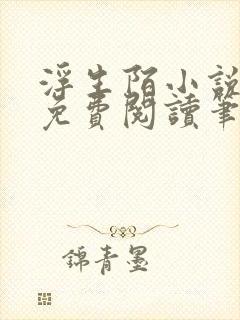 浮生陌小說
免費閱讀筆
錦青墨